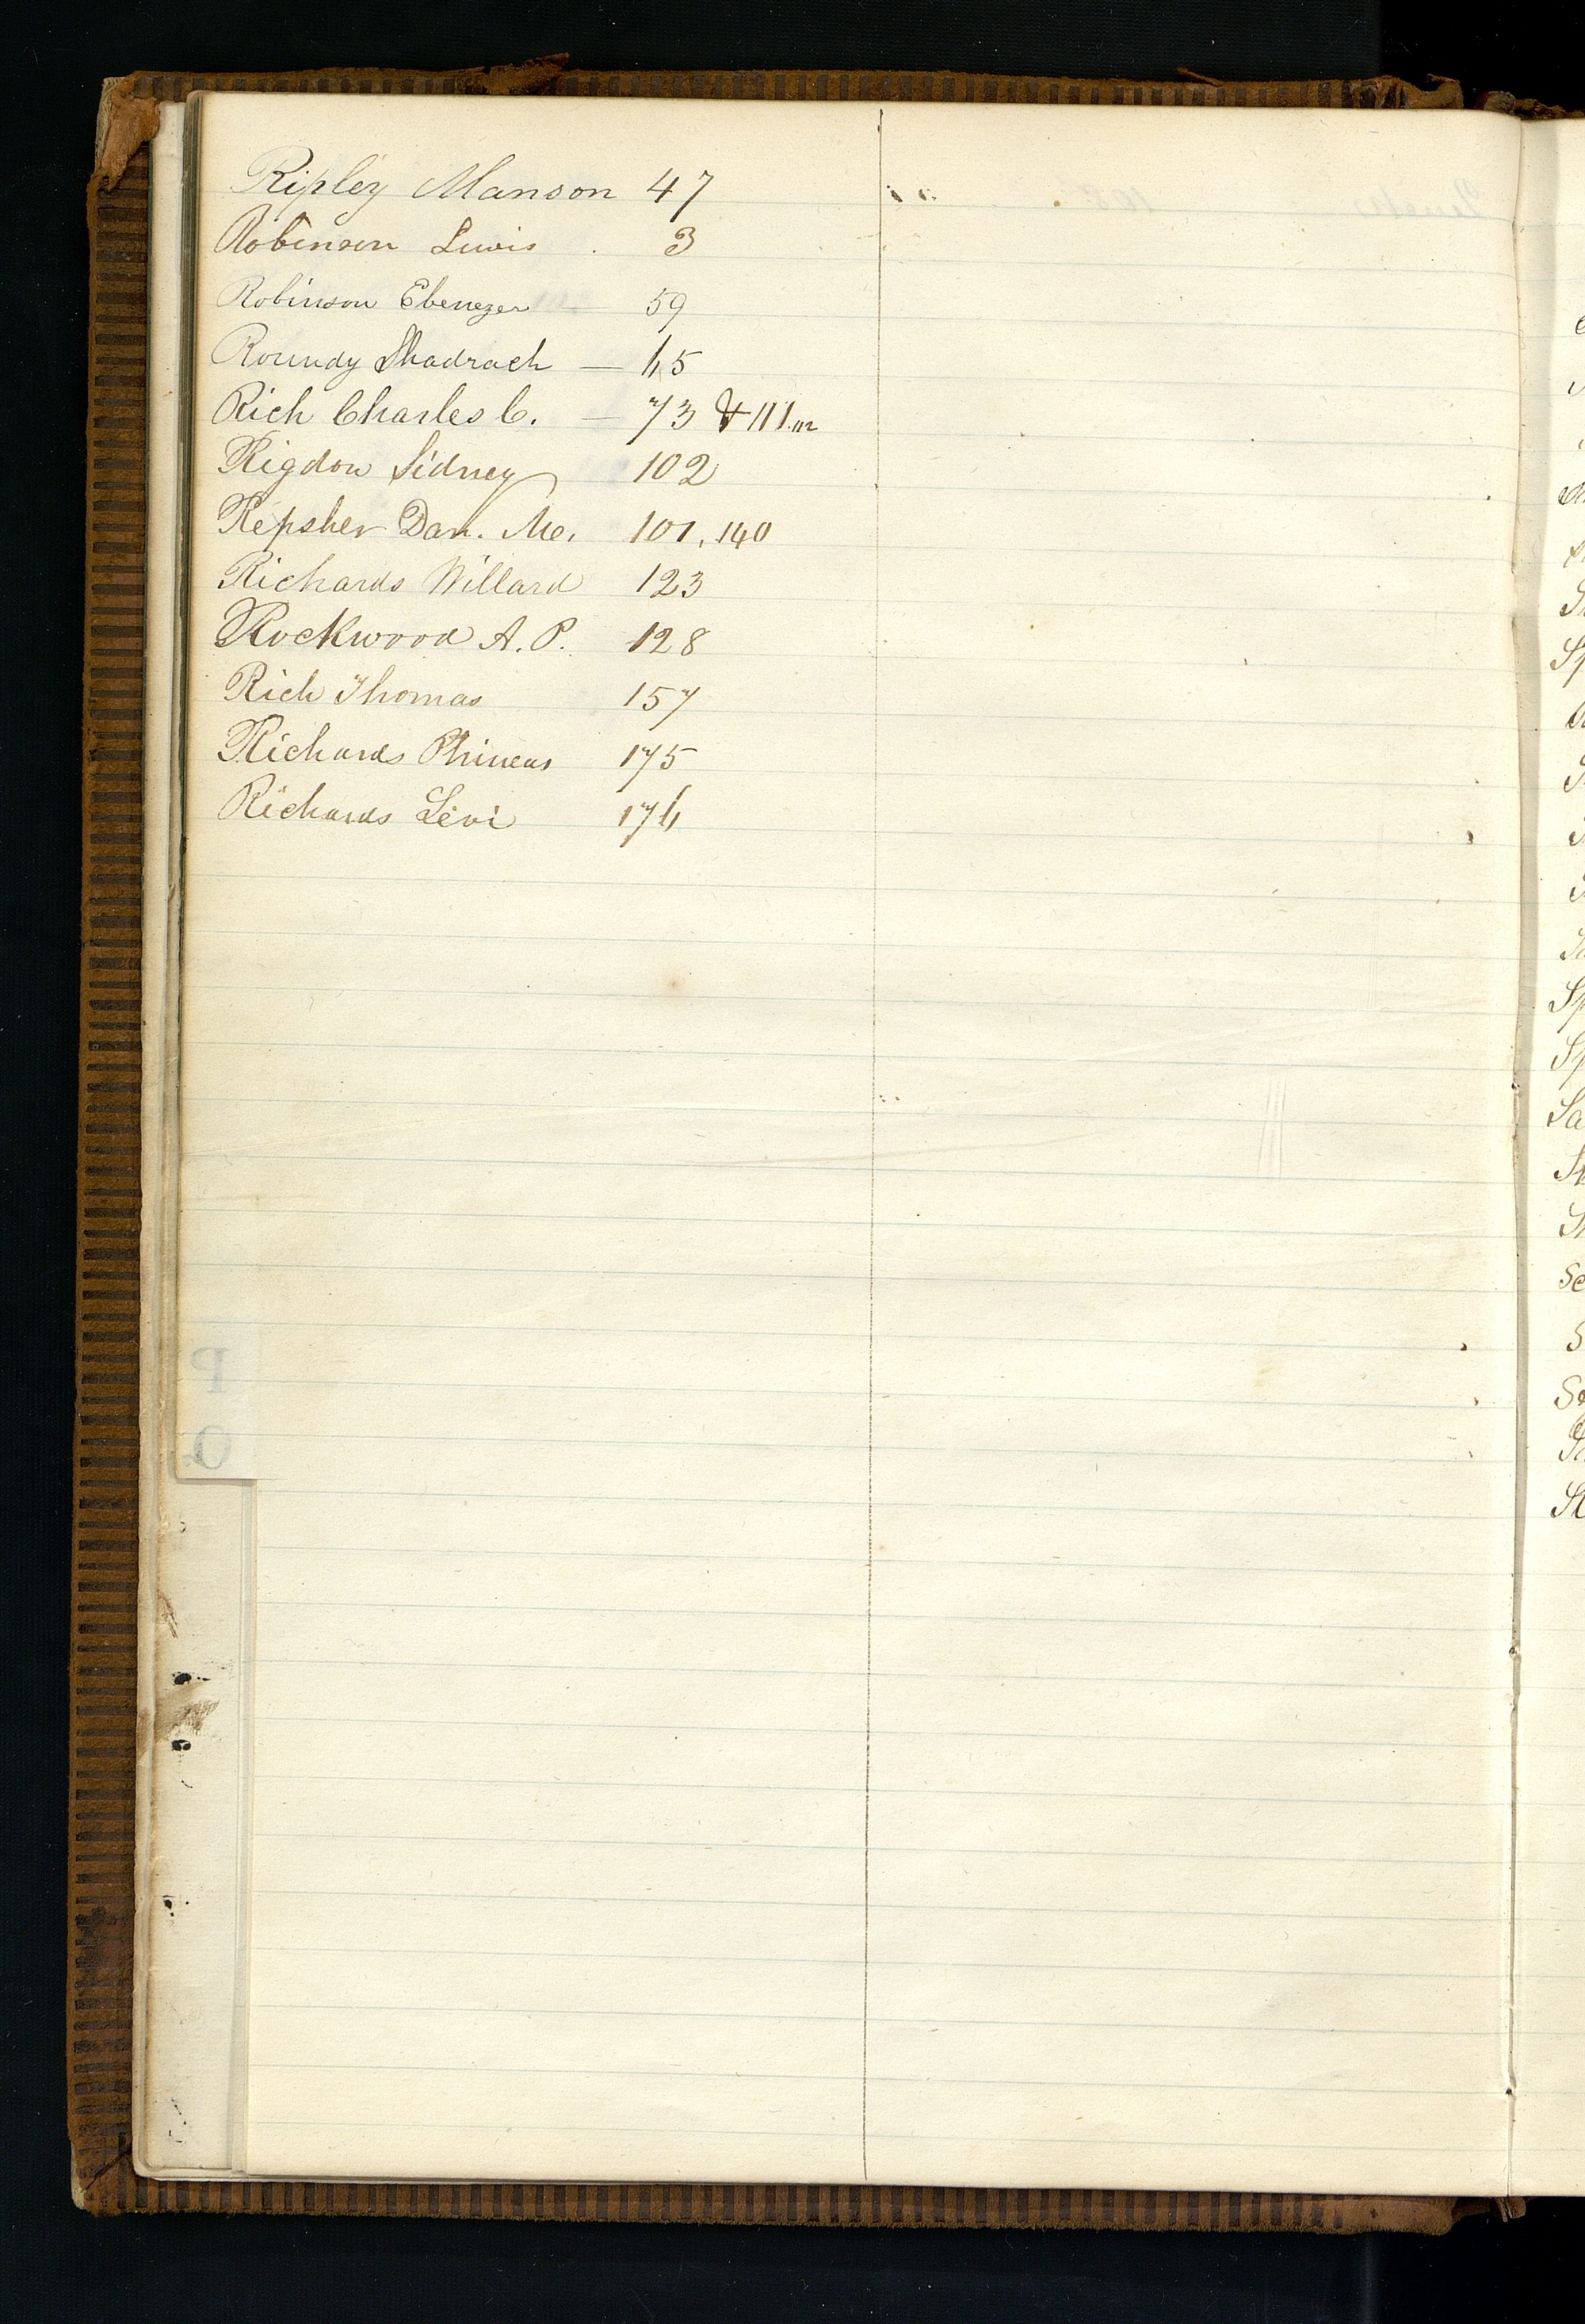 Ripley Manson 47
Robinson Lewis . 3
Robinson Ebenezer — 59
Roundy Shadrach — 65
Rich Charles C. — 73 & 111.112
Rigdon Sidney 102
Repsher Dan. Mc. 101, 140
Richards Willard 123
Rockwood A. P. 128
Rich Thomas 157
Richards Phineas 175
Richards Levi 176
P
Q